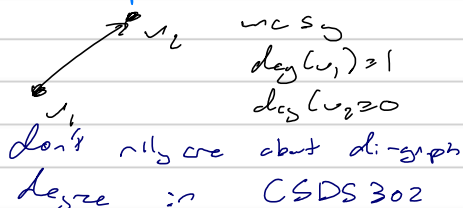 v₂ we say
deg(v₁)=1
v₁ deg(v₂)=0
don't rlly care about di-graph
degree in CSDS 302